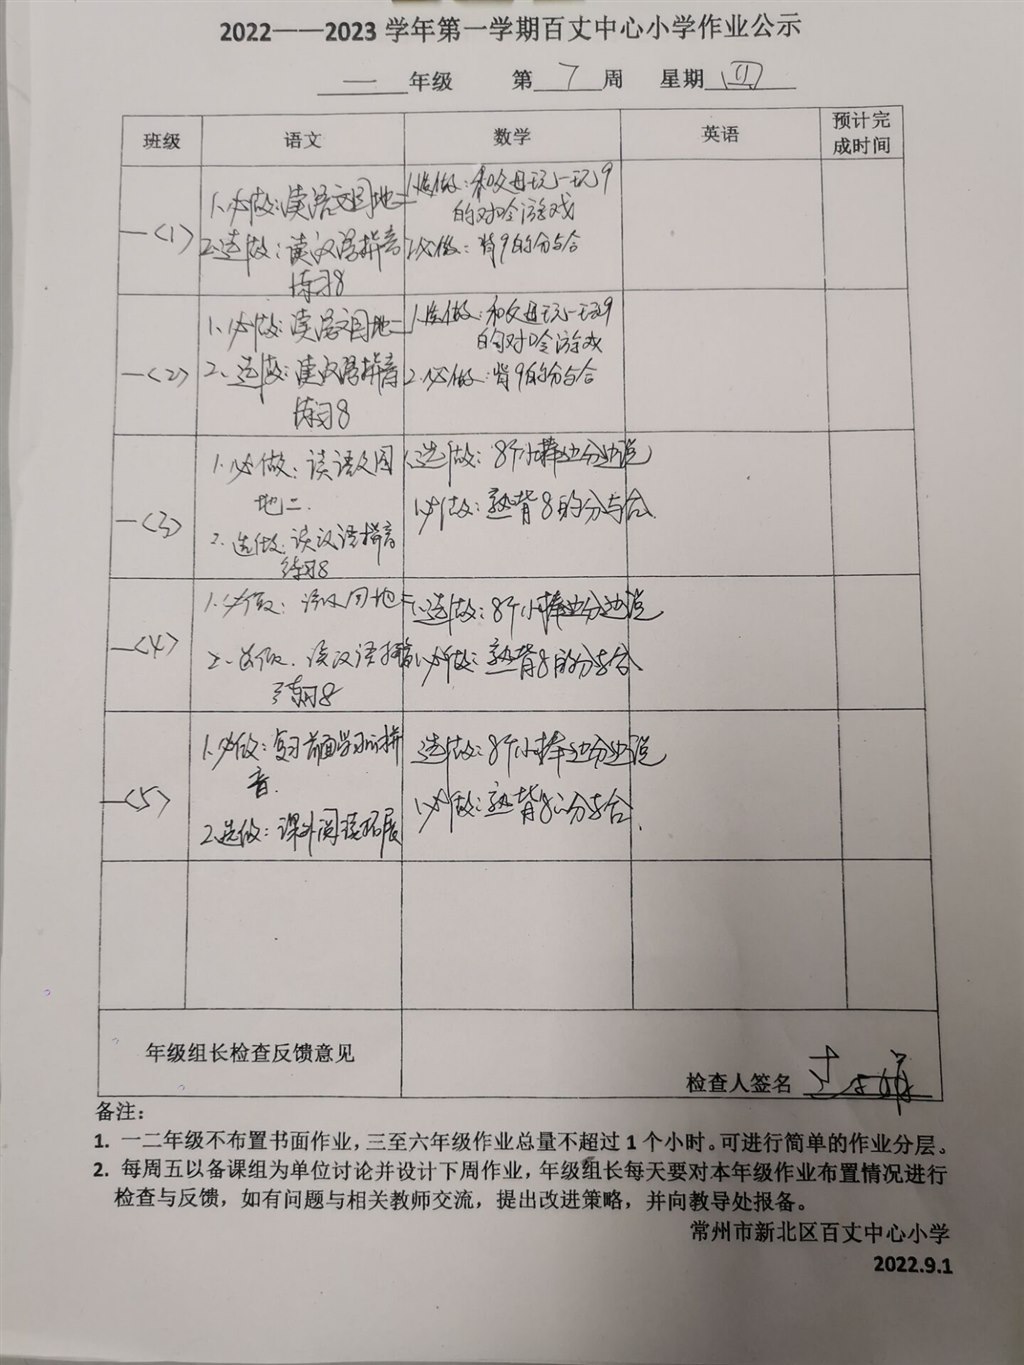 2022——2023学年第一学期百丈中心小学作业公示
一 年级 第 7 周 星期 四
班级 语文 数学 英语 预计完成时间
一<1>
1.必做:读语文园地二
2.选做:读汉语拼音
练习8
1.选做:和父母玩一玩9
的对口令游戏
2.必做:背9的分与合
一<2>
1.必做:读语文园地二
2.选做:读汉语拼音
练习8
1.选做:和父母玩一玩9
的对口令游戏
2.必做:背9的分与合
一<3>
1.必做:读语文园
地二.
2.选做:读汉语拼音
练习8
1.选做:8个小棒边分边说
必做:熟背8的分与合.
一<4>
1.必做:语文园地
2.必做.读汉语拼音
练习8
1.选做:8个小棒边分边说
必做:熟背8的分与合
一<5>
1.必做:复习前面学习的拼
音.
2.选做:课外阅读拓展
选做:8个小棒边分边说
必做:熟背8的分与合.
年级组长检查反馈意见
检查人签名
备注:
1. 一二年级不布置书面作业,三至六年级作业总量不超过1个小时。可进行简单的作业分层。
2. 每周五以备课组为单位讨论并设计下周作业,年级组长每天要对本年级作业布置情况进行
检查与反馈,如有问题与相关教师交流,提出改进策略,并向教导处报备。
常州市新北区百丈中心小学
2022.9.1